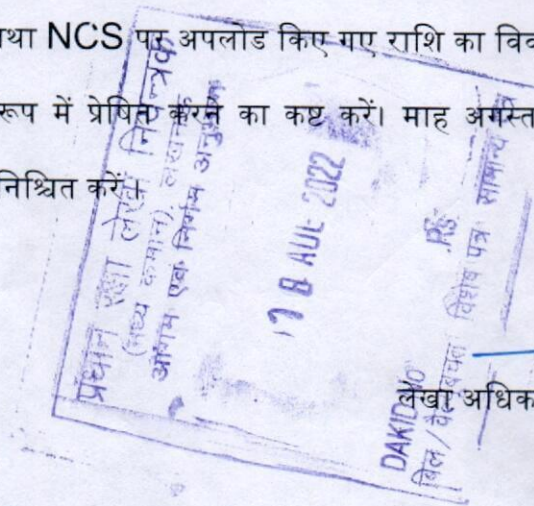 तथा NCS पर अपलोड किए गए राशि का विव
रूप में प्रेषित करने का कष्ट करें। माह अगस्त
निश्चित करें।
लेखा अधिक
प्रधान रक्षा लेखा नियन्त्रक
(मध्य कमान) लखनऊ
आगम एवं निर्गम अनुभाग
18 AUG 2022
DAKID No
बिल / विशेष पत्र सामान्य